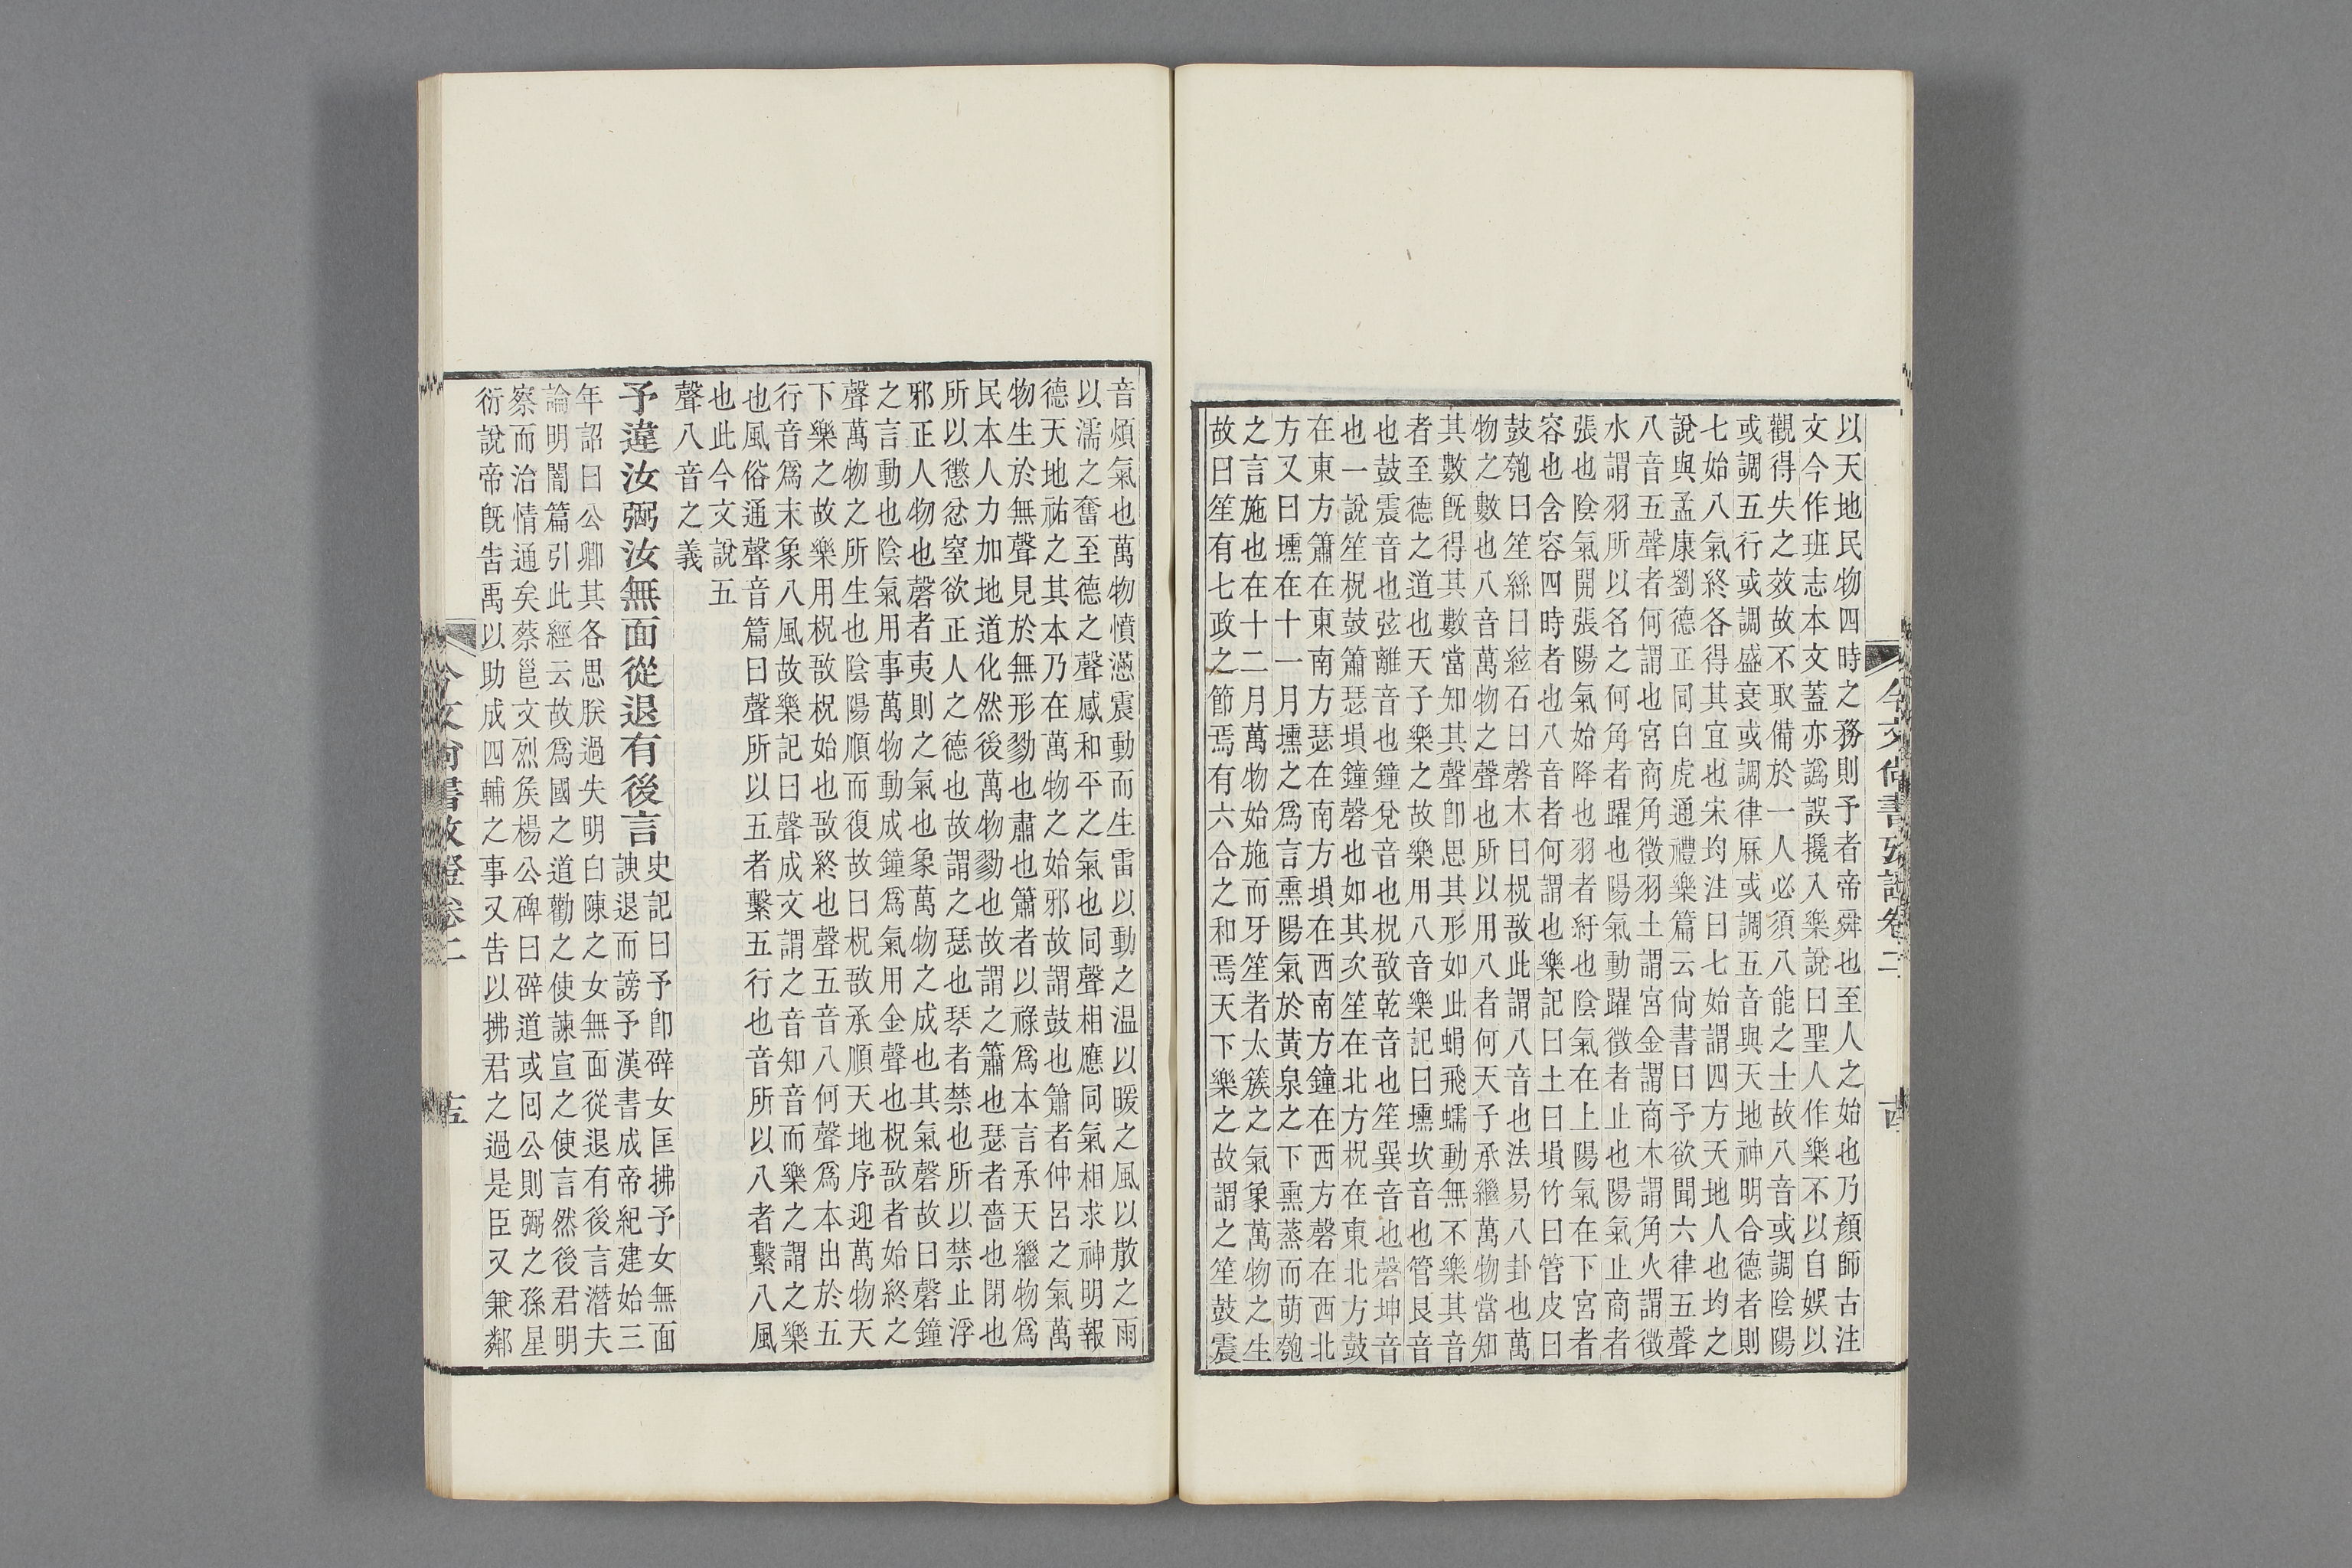 以天地民物四時之務則予者帝舜也至人之始也乃顏師古注
文今作班志本文蓋亦譌誤攙入樂說曰聖人作樂不以自娛以
觀得失之效故不取備於一人必須八能之士故八音或調陰陽
或調五行或調盛衰或調律厤或調五音與天地神明合德者則
七始八氣終各得其宜也宋均注曰七始謂四方天地人也均之
說與孟康劉德正同白虎通禮樂篇云尙書曰予欲聞六律五聲
八音五聲者何謂也宮商角徵羽土謂宮金謂商木謂角火謂徵
水謂羽所以名之何角者躍也陽氣動躍徵者止也陽氣止商者
張也陰氣開張陽氣始降也羽者紆也陰氣在上陽氣在下宮者
容也含容四時者也八音者何謂也樂記曰土曰塤竹曰管皮曰
鼓匏曰笙絲曰絃石曰磬木曰柷敔此謂八音也法易八卦也萬
物之數也八音萬物之聲也所以用八者何天子承繼萬物當知
其數既得其數當知其聲卽思其形如此蜎飛蠕動無不樂其音
者至德之道也天子樂之故樂用八音樂記曰壎坎音也管艮音
也鼓震音也弦離音也鐘兌音也柷敔乾音也笙巽音也磬坤音
也一說笙柷鼓簫瑟塤鐘磬也如其次笙在北方柷在東北方鼓
在東方簫在東南方瑟在南方塤在西南方鐘在西方磬在西北
方又曰壎在十一月壎之爲言熏陽氣於黃泉之下熏蒸而萌匏
之言施也在十二月萬物始施而牙笙者太簇之氣象萬物之生
故曰笙有七政之節焉有六合之和焉天下樂之故謂之笙鼓震
今文尙書攷證卷二
十四
音煩氣也萬物憤懣震動而生雷以動之温以暖之風以散之雨
以濡之奮至德之聲感和平之氣也同聲相應同氣相求神明報
德天地祐之其本乃在萬物之始邪故謂鼓也簫者仲呂之氣萬
物生於無聲見於無形勠也肅也簫者以祿爲本言承天繼物爲
民本人力加地道化然後萬物勠也故謂之簫也瑟者嗇也閉也
所以懲忿窒欲正人之德也故謂之瑟也琴者禁也所以禁止浮
邪正人物也磬者夷則之氣也象萬物之成也其氣磬故曰磬鐘
之言動也陰氣用事萬物動成鐘爲氣用金聲也柷敔者始終之
聲萬物之所生也陰陽順而復故曰柷敔承順天地序迎萬物天
下樂之故樂用柷敔柷始也敔終也聲五音八何聲爲本出於五
行音爲末象八風故樂記曰聲成文謂之音知音而樂之謂之樂
也風俗通聲音篇曰聲所以五者繫五行也音所以八者繫八風
也此今文說五
聲八音之義
予違汝弼汝無面從退有後言史記曰予卽辟女匡拂予女無面
諛退而謗予漢書成帝紀建始三
年詔曰公卿其各思朕過失明白陳之女無面從退有後言潛夫
論明闇篇引此經云故爲國之道勸之使諫宣之使言然後君明
察而治情通矣蔡邕文烈矦楊公碑曰辟道或回公則弼之孫星
衍說帝旣吿禹以助成四輔之事又吿以拂君之過是臣又兼鄰
今文尙書攷證卷二
十五